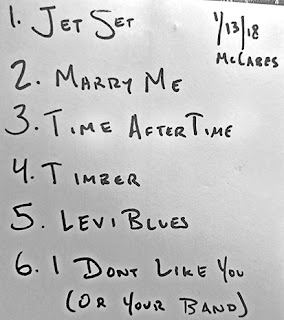 1. JET SET
1/13/18
McCABES
2. MARRY ME
3. TIME AFTER TIME
4. TIMBER
5. LEVI BLUES
6. I DONT LIKE YOU
(OR YOUR BAND)